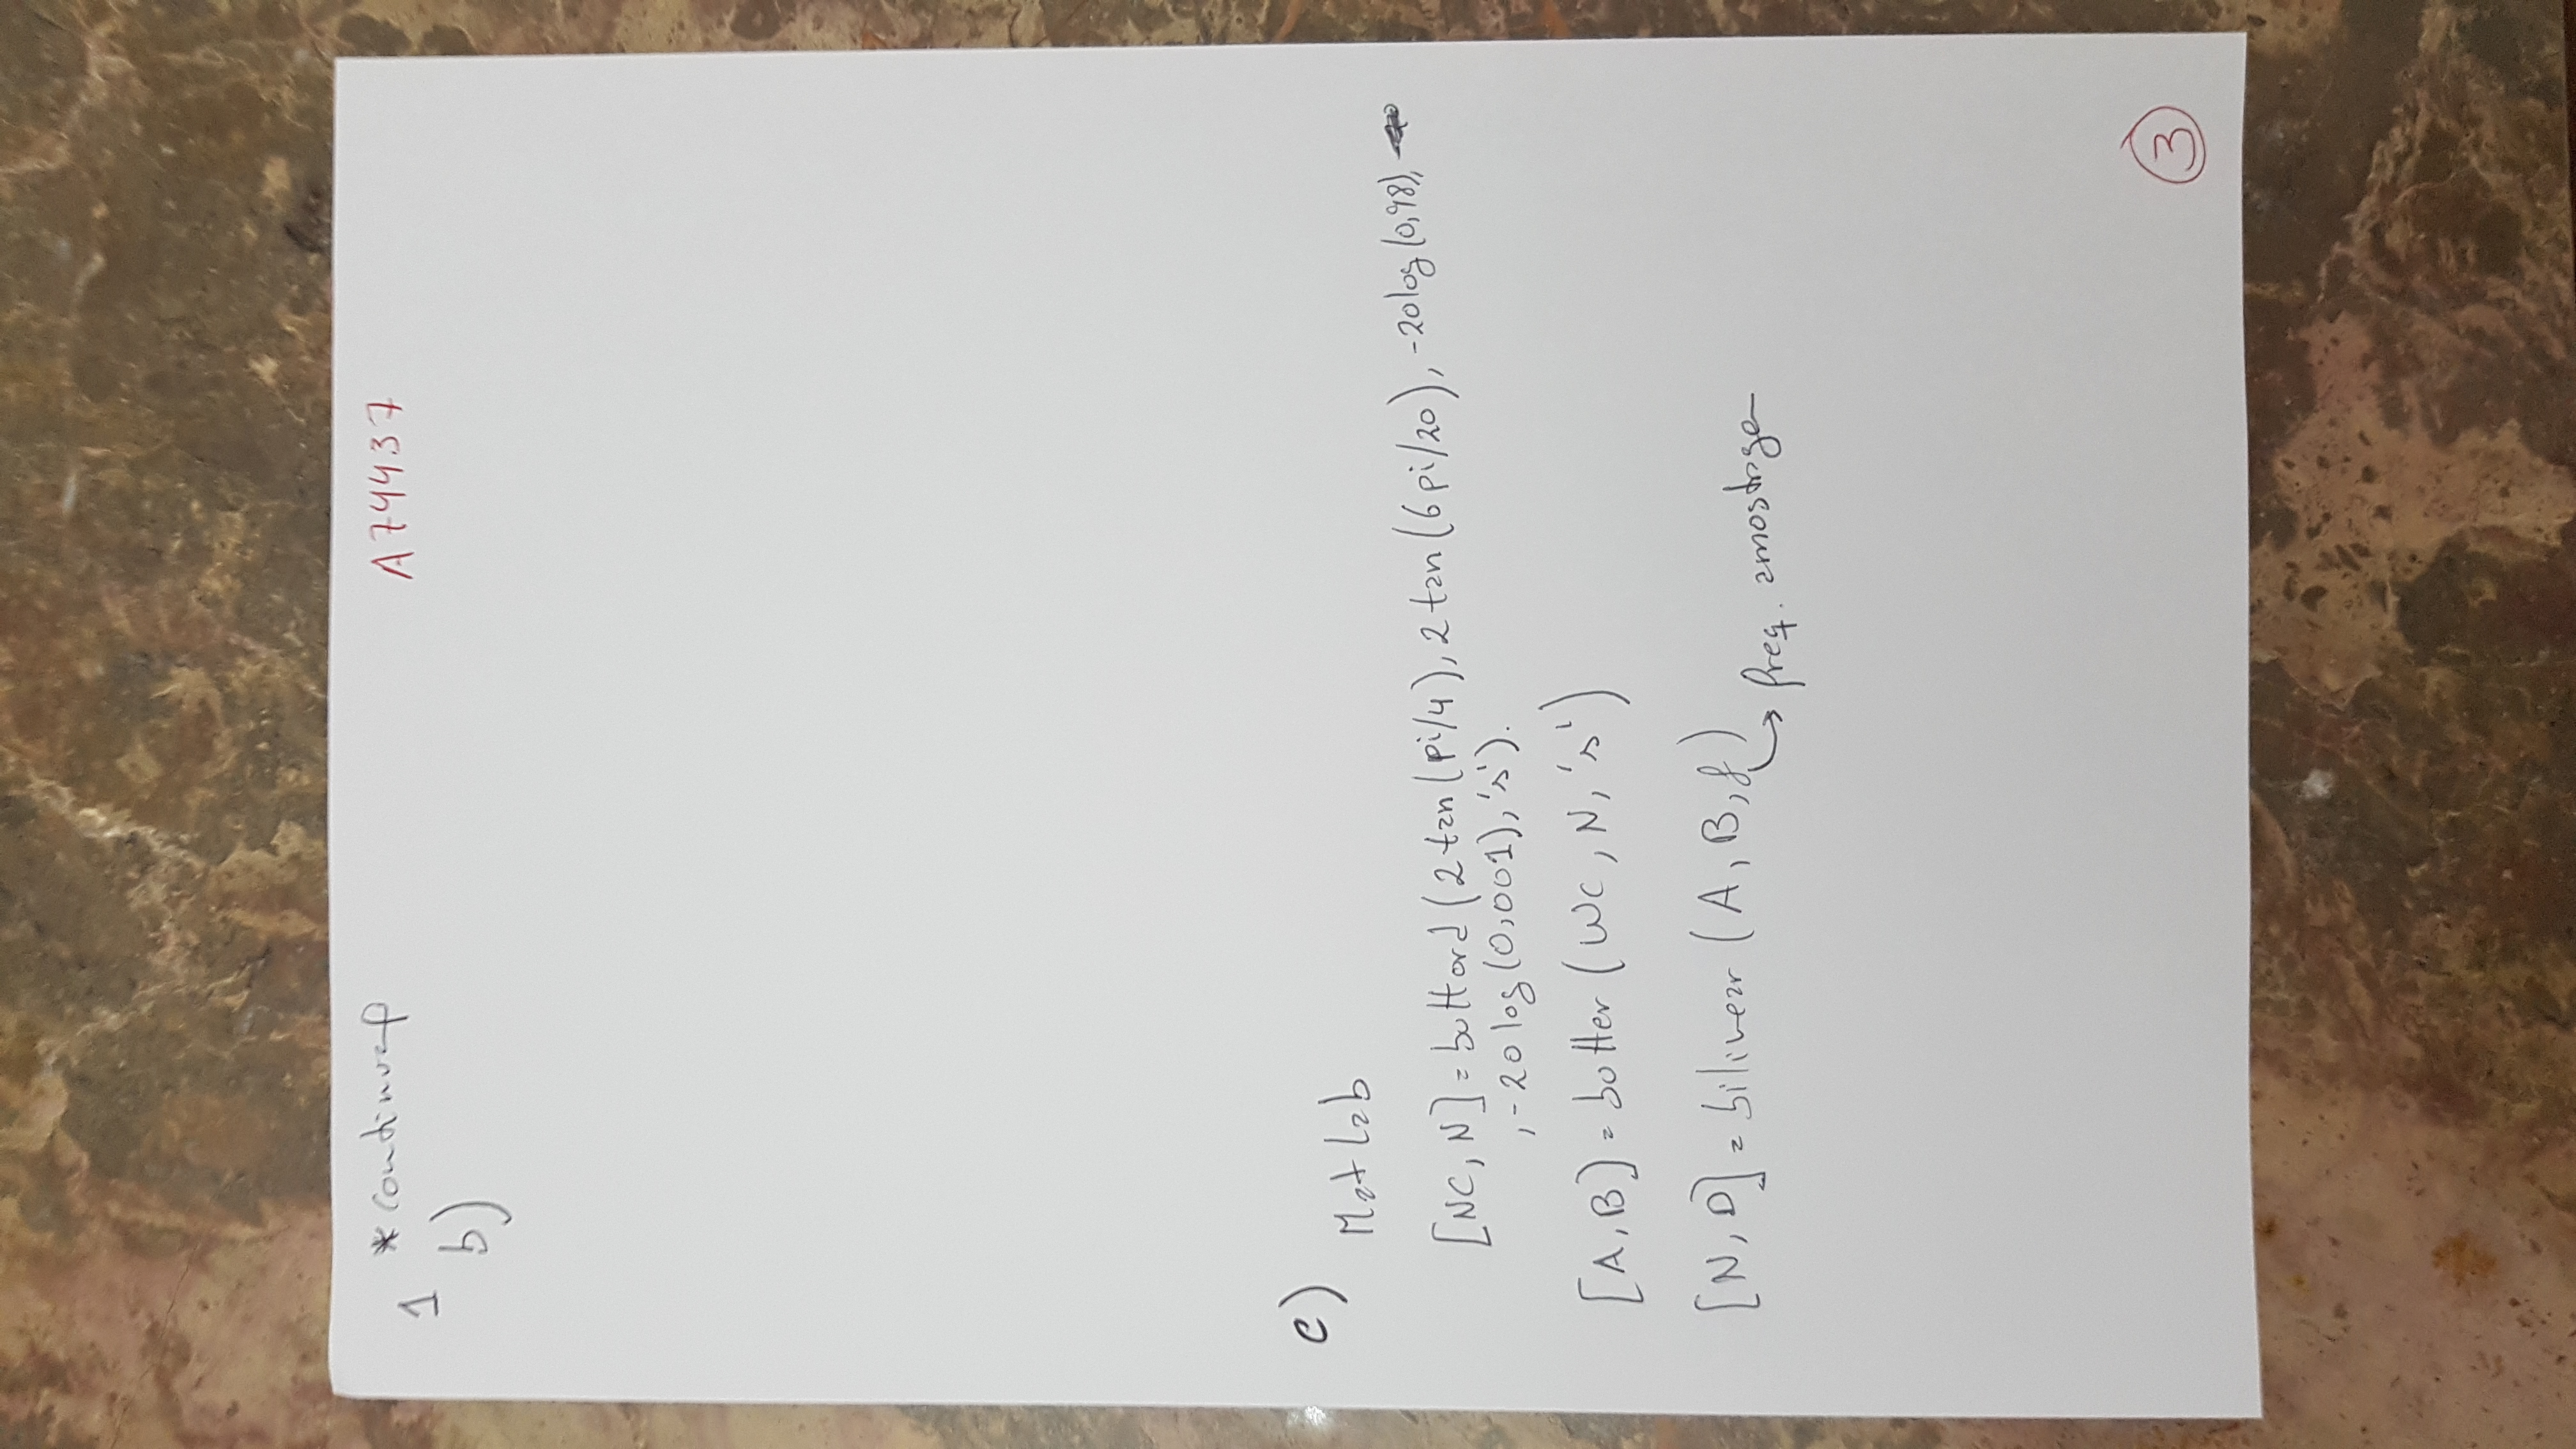 * continuap A74437
1
b)
c)
Matlab
[NC, N] = buttord (2 tan(pi/4), 2 tan(6pi/20), -20log(0,98),
, -20 log(0,001), 's').
[A, B] = butter (WC, N, 's')
[N, D] = bilinear (A, B, f)
→ freq. amostragem
3